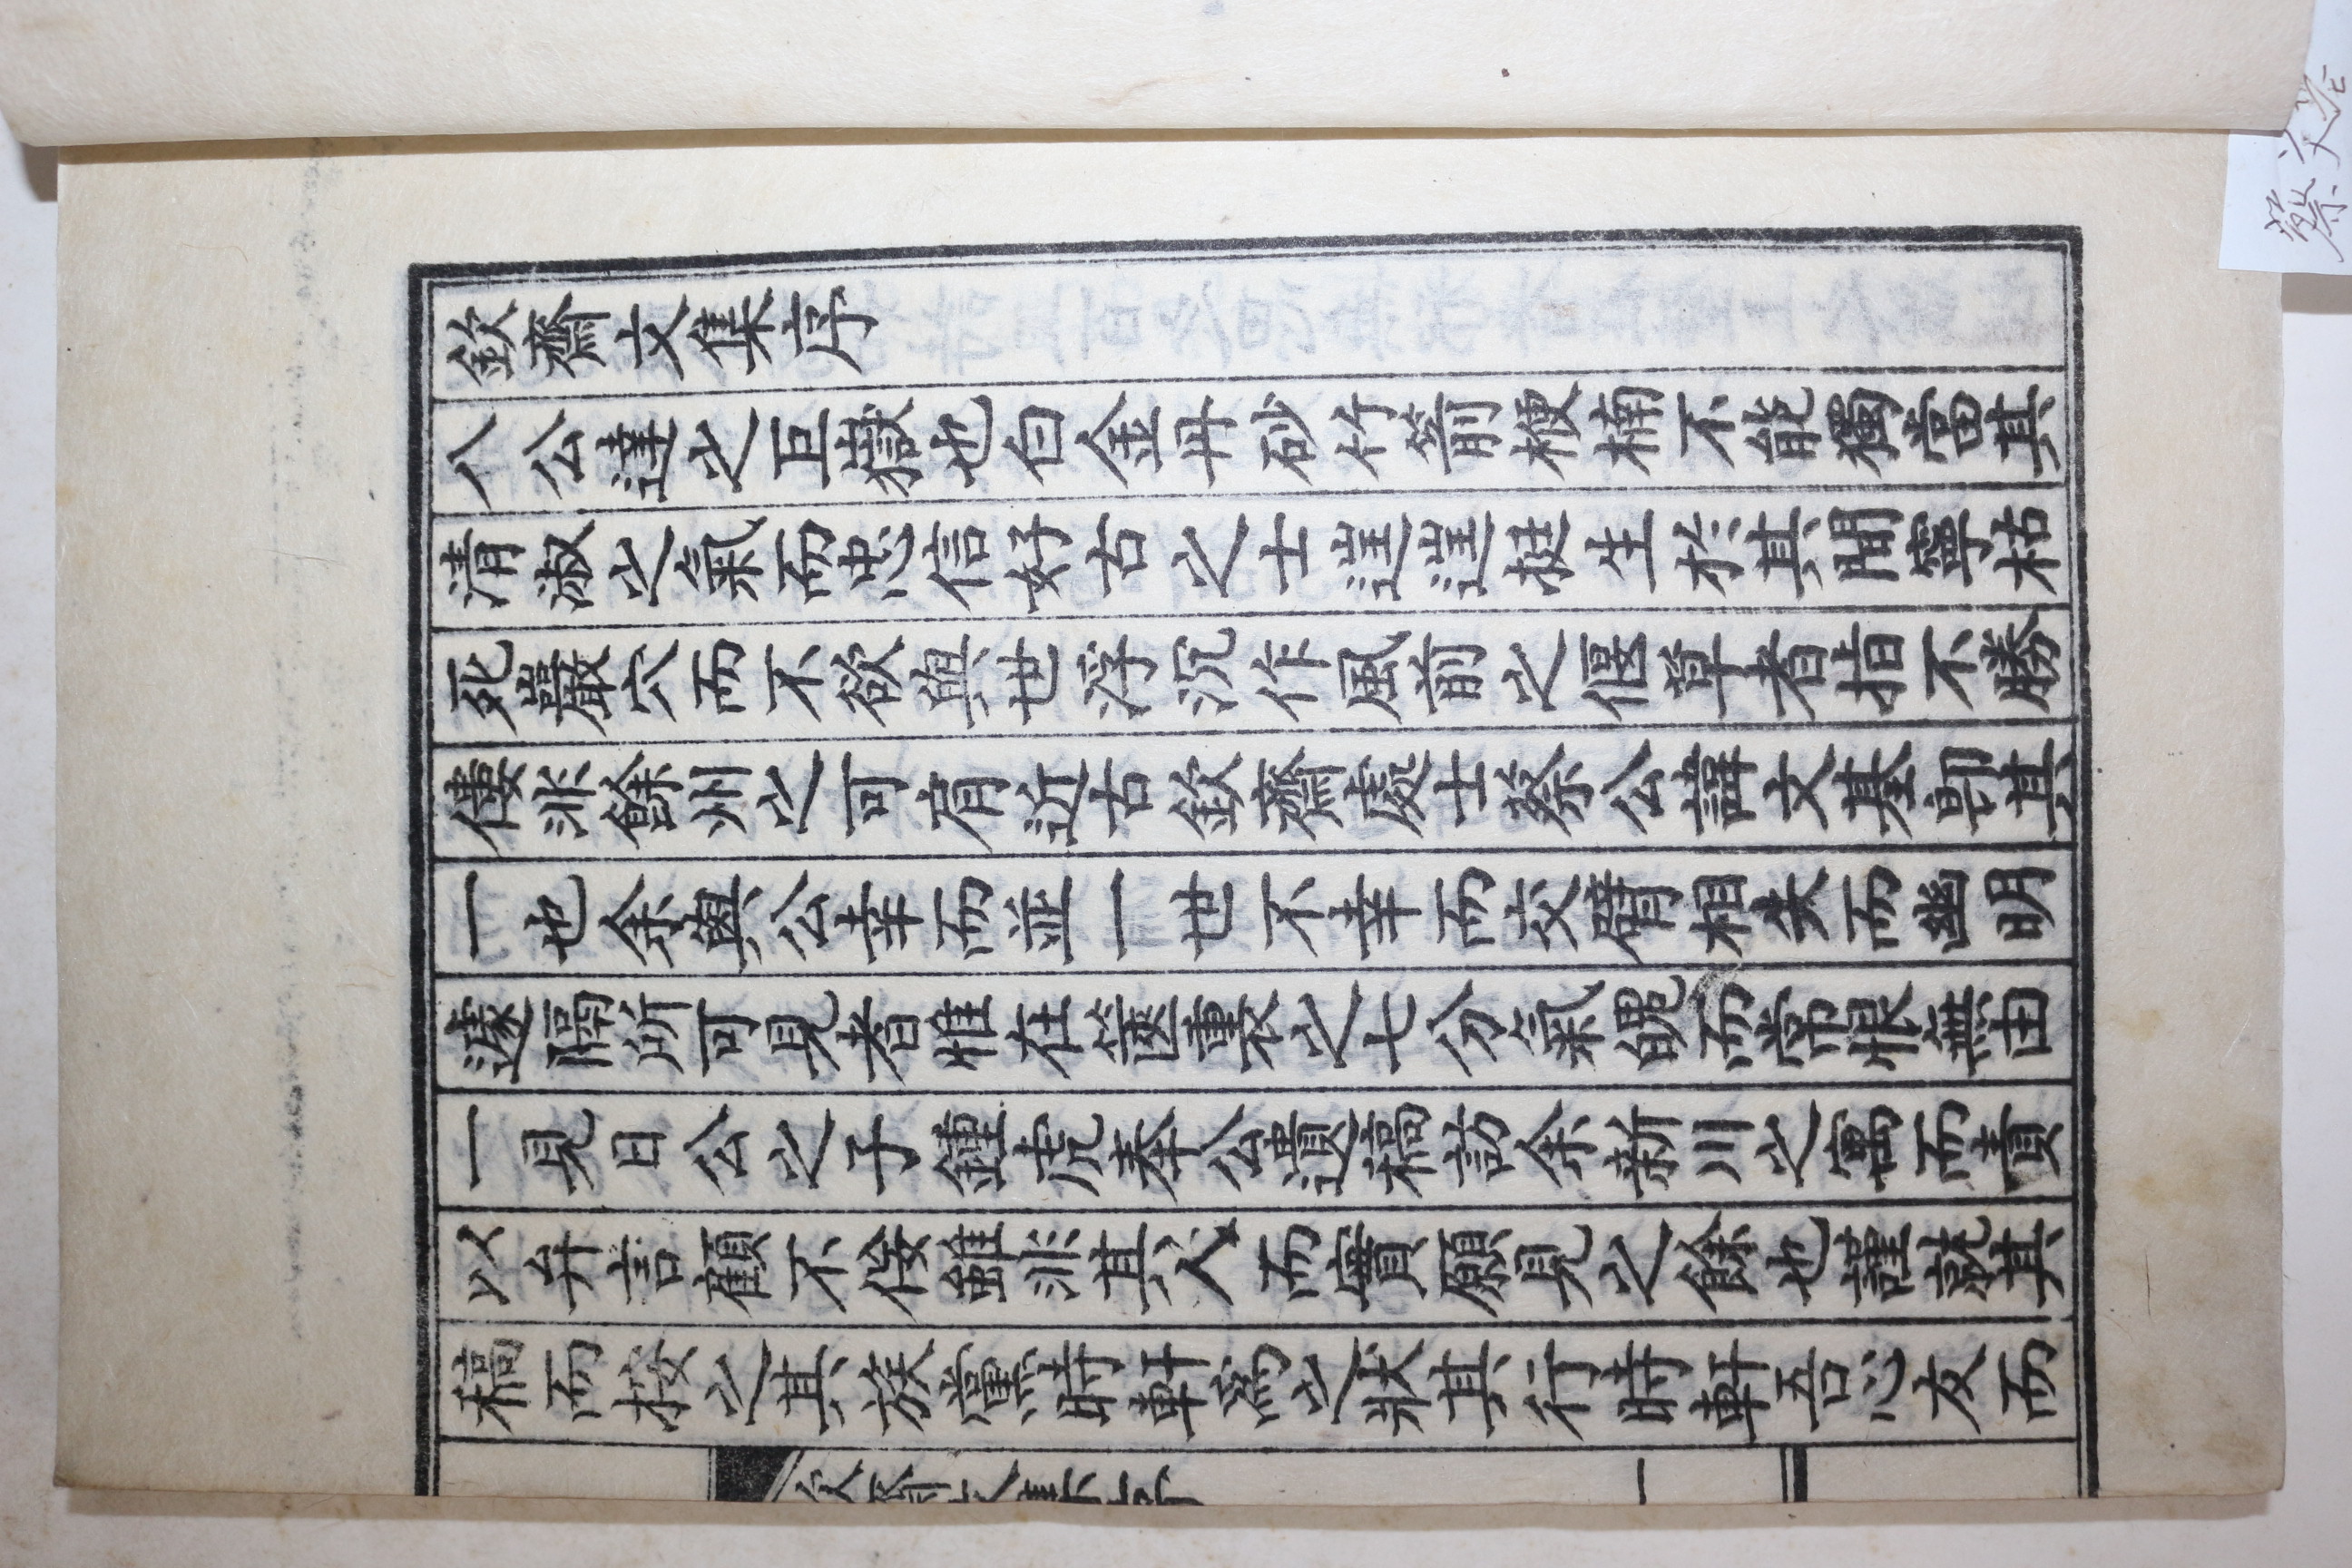 欽齋文集序
八公達之巨嶽也白金丹砂竹箭楩楠不能獨當其
清淑之氣而忠信好古之士往往挺生於其間寧枯
死巖穴而不欲與世浮沉作風前之偃草者指不勝
僂非餘州之可肩近古欽齋處士蔡公諱文基卽其
一也余與公幸而並一世不幸而交臂相失而幽明
遽隔所可見者惟在篋裏之七分氣貌而常恨無由
一見日公之子鍾虎奉公遺稿訪余新川之寓而責
以弁言顧不佞雖非其人而實願見之餘也謹就其
稿而校之其族黨時軒爲之狀其行時軒吾心友而
欽齋文集序 一
蔡文